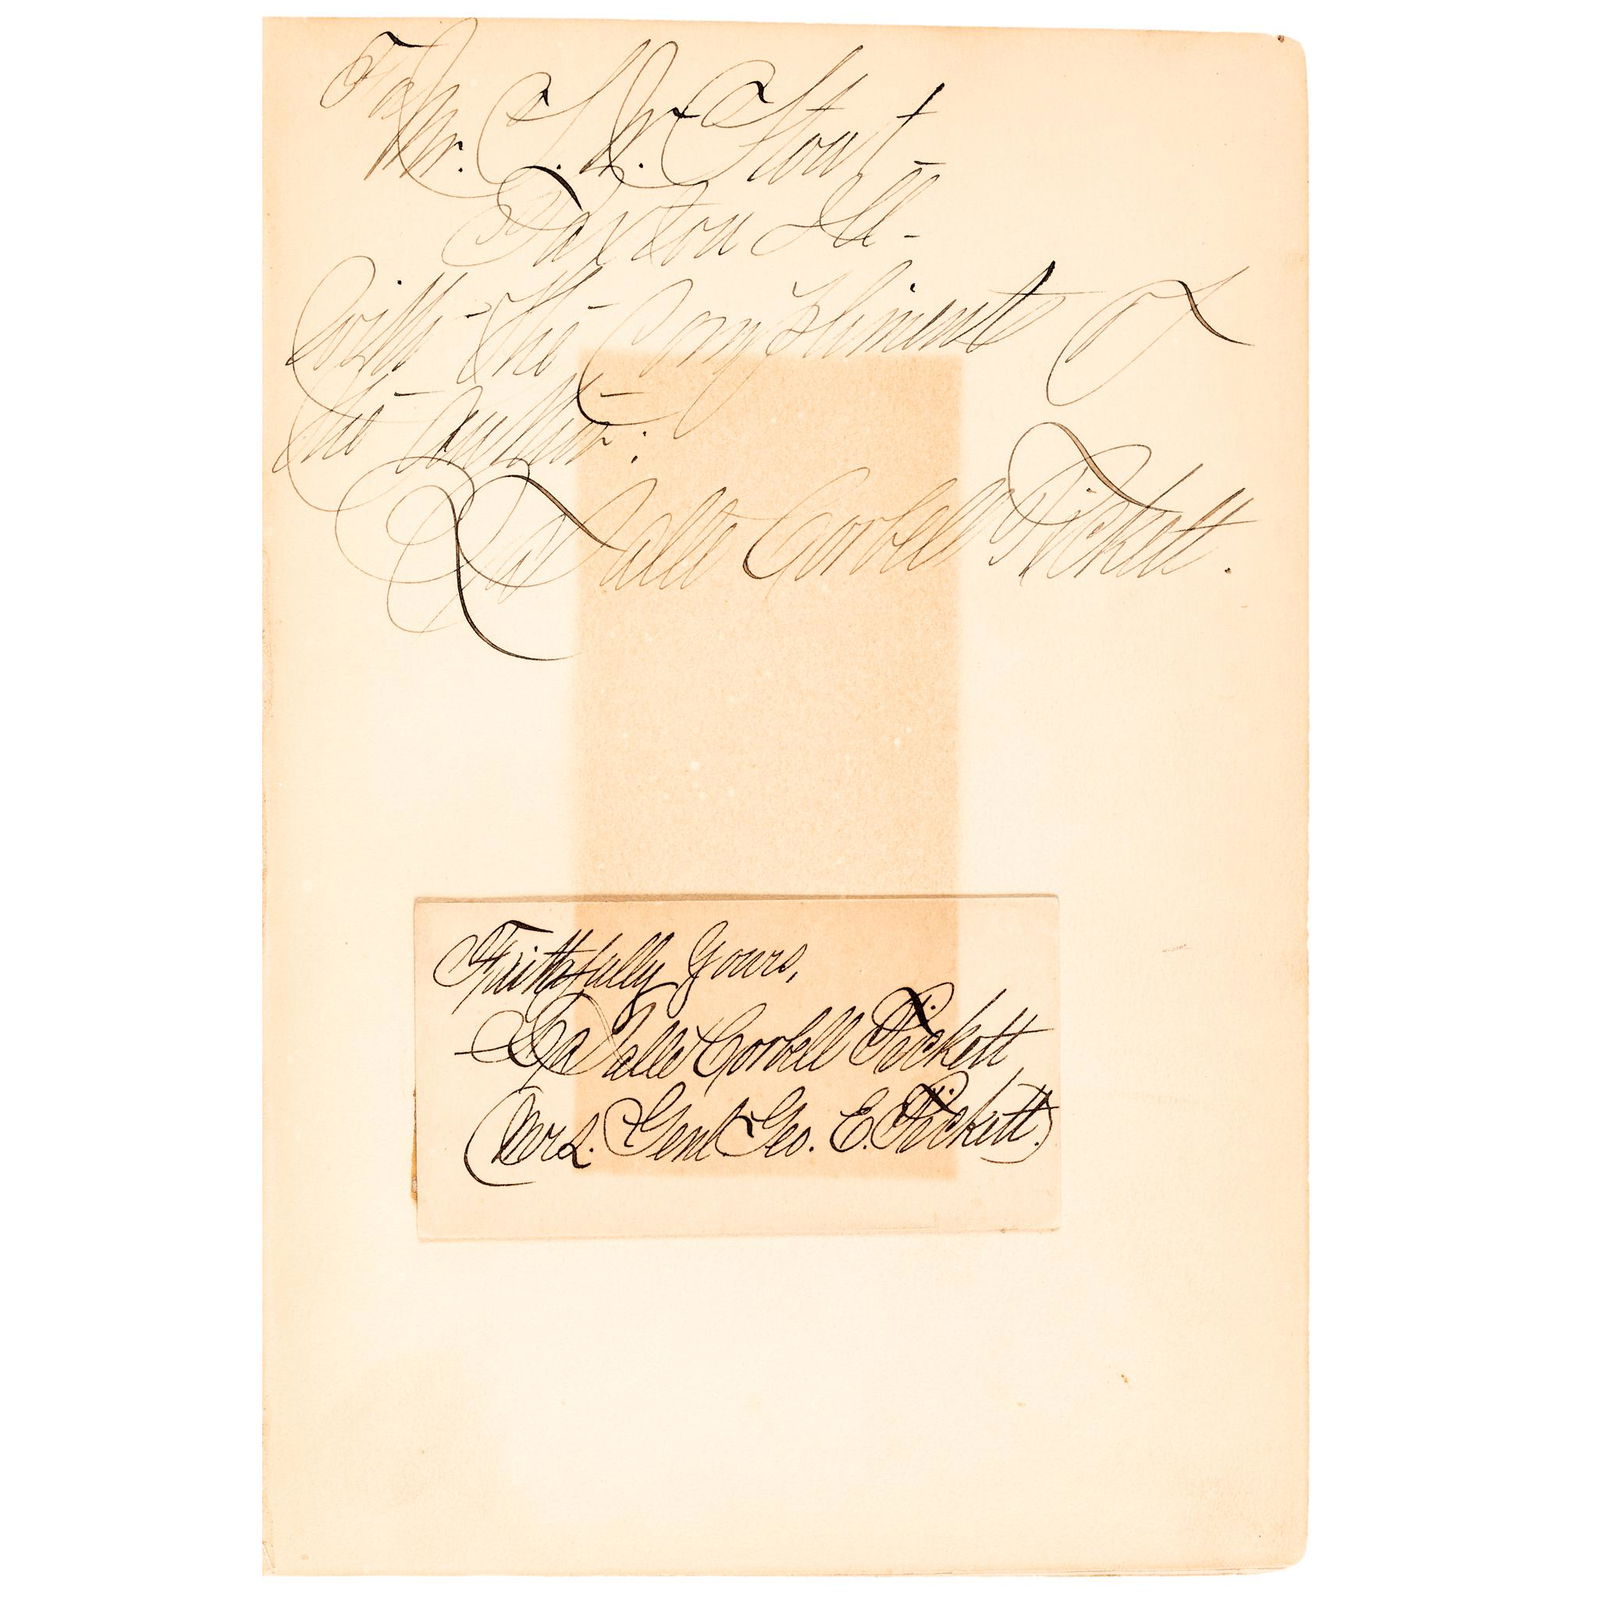 To
Mr. C. S. W. Stout -
Paxton Ill -
With the Compliments of
the author:
LaSalle Corbell Pickett.
Faithfully Yours,
LaSalle Corbell Pickett
(Mrs. Genl. Geo. E. Pickett.)